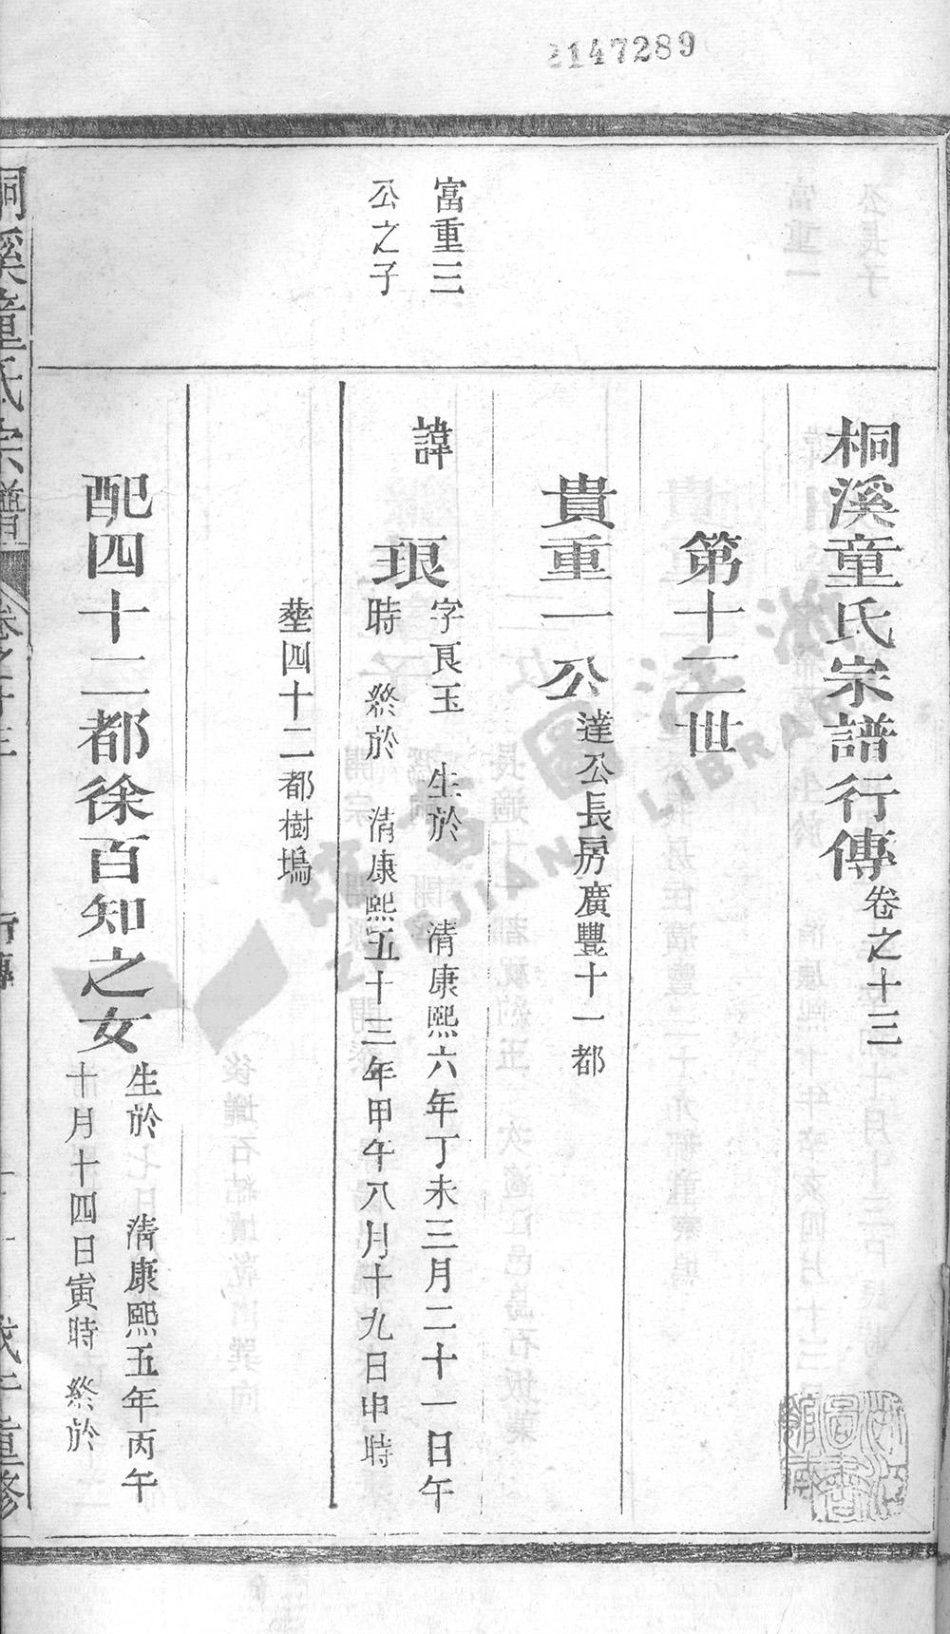 2147289
桐溪童氏宗譜行傳卷之十三
第十二世
貴重一公達公長房廣豐十一都
富重三
公之子
諱 琅
字良玉 生於 清康熙六年丁未三月二十一日午
時 終於 清康熙五十三年甲午八月十九日申時
塟四十二都樹塢
配四十二都徐百知之女
生於 清康熙五年丙午
十月十四日寅時 終於
桐溪童氏宗譜
卷之十三
行傳
重修
浙江圖書館
ZHEJIANG LIBRARY